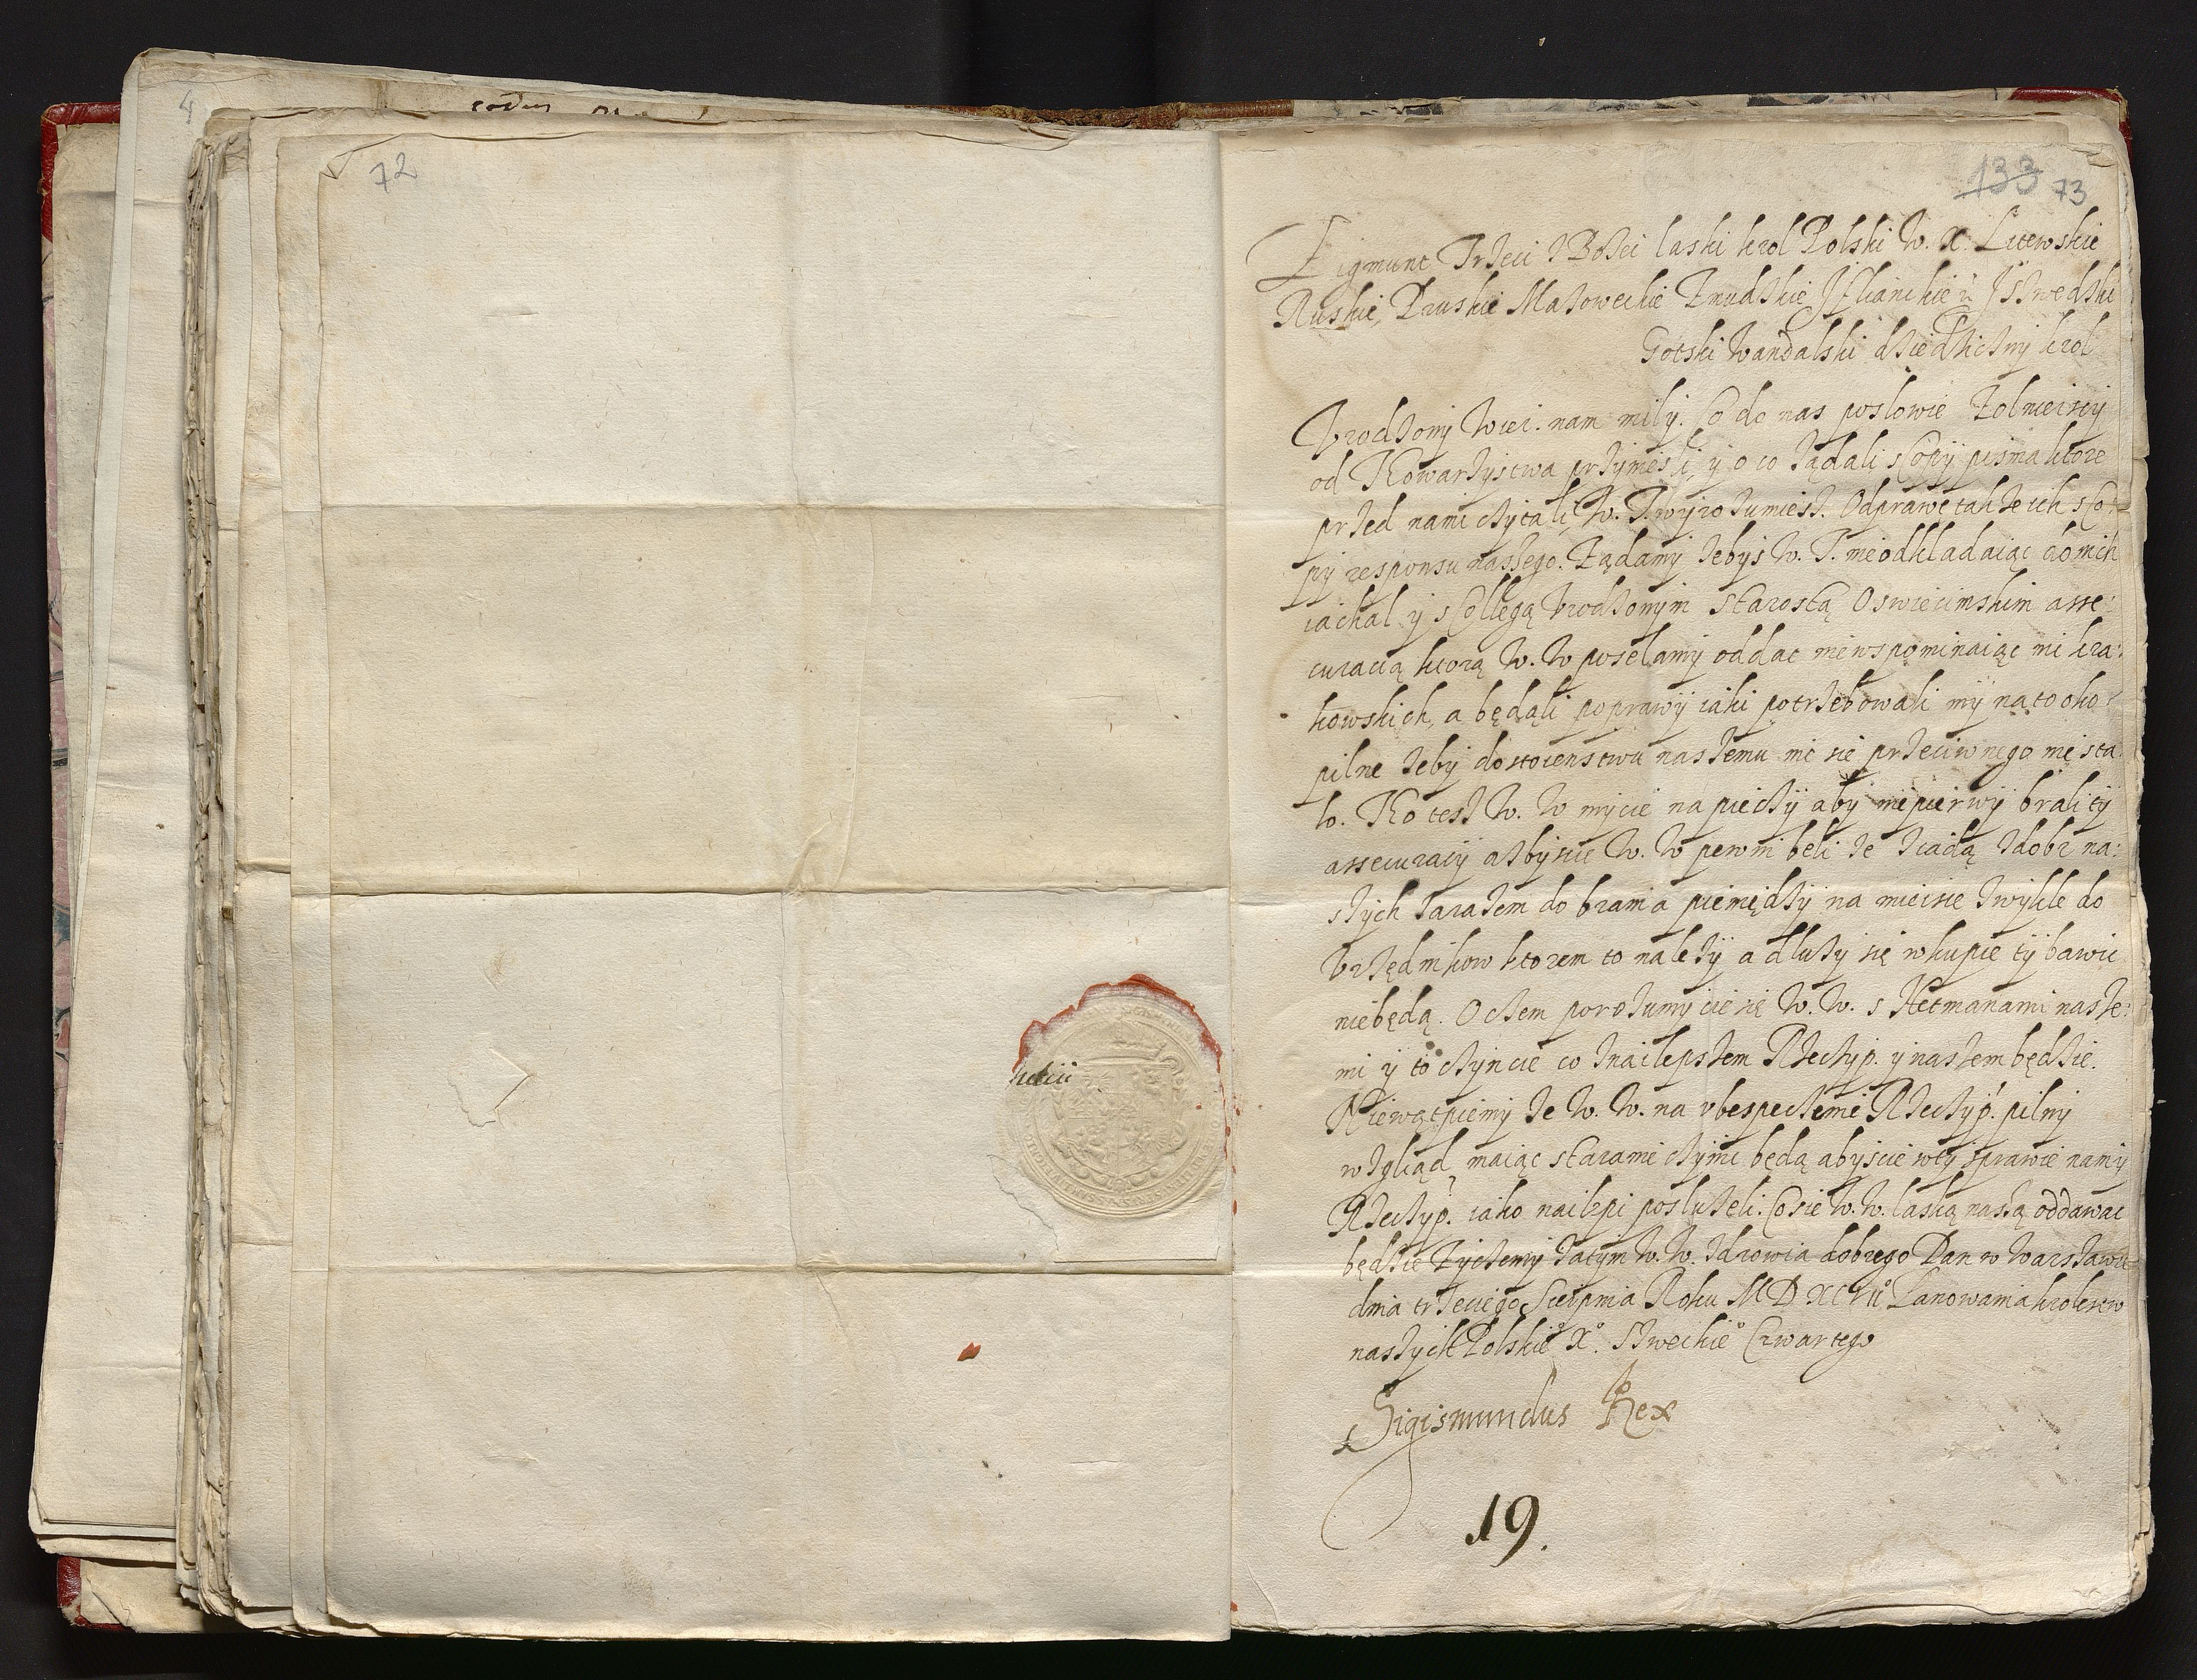 4
72
133 73
Zigmunt Trzeci z Bozei laski krol Polski W. X. Litewskie
Ruskie, Pruskie Mazoweckie Zmudzkie Jflanckie y Jszwedzki
Gotski Wandalski dziedziczny krol
Vrodzony Wier. nam mily. Co do nas poslowie Zolnierscy
od Towarzystwa przyniesli, y o co żądali s Copÿ pisma ktore
przed nami czytali, W. T. wyrozumiesz. Odprawę takze ich s Co:
pÿ responsu naszego. Ządamy zebys W. T. nieodkladaiąc do nich
iachal y s Collegą Vrodzonym Starostą Oswiecimskim asse:
curacią ktorą W. W poselamy oddac niewspominaiąc nic kra:
kowskich, a będąli poprawÿ iaki potrzebowali mÿ na to oko
pilne zeby dostoienstwu naszemu nic sie przeciwnego nie sta
lo. To tesz W. W mycie na pieczÿ aby niepierwÿ brali tÿ
assecuraciÿ azbyscie W. W pewni beli ze ziadą z dobr na:
szÿch zarazem do brania pieniędzÿ na mieisce zwÿkle do
Vrzędnikow ktorem to nalezÿ a dluzÿ się w kupie tÿ bawic
niebędą. O czem porozumycie się W. W. s Hetmanami nasze:
mi ÿ to czyncie co znailepszem Rzeczyp. y naszem będzie.
Niewątpiemy ze W. W. na vbespieczenie Rzeczyp. pilny
wzgląd maiąc staranie czynic będą abyscie w tÿ sprawie nam y
Rzeczyp. iako nailepi posluzeli. Co sie W. W. laską naszą oddawac
będzie Zyczemy zatym W. W. zdrowia dobrego Dan w Warszawie
dnia trzeciego Sierpnia Roku MDXCVII Panowania krolestw
naszych Polskieº Xº. Szweckieº Czwartego
Sigismundus Rex
19.